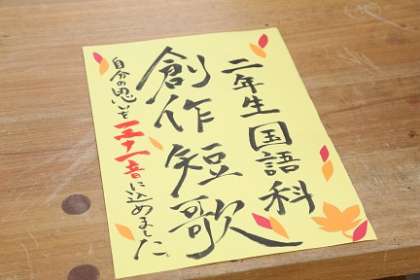 二年生国語科
創作短歌
自分の思いを三十一音に込めました。